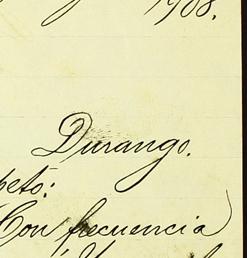 1908.
Durango.
peto:
Con frecuencia